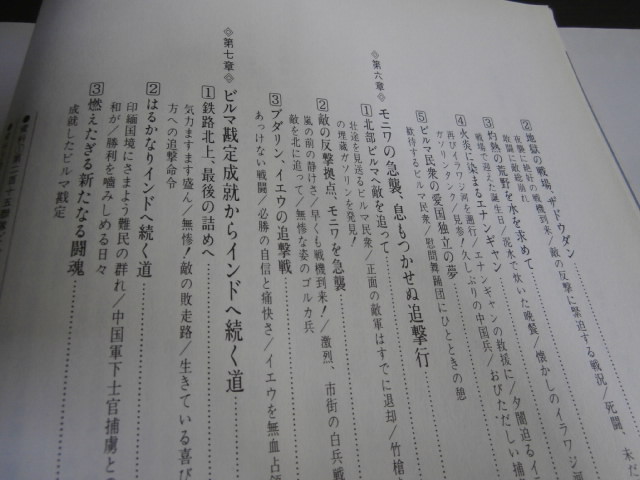 2 地獄の戦場、ザドウダン
夜襲に絶好の戦機到来/敵の反撃に緊迫する戦況/死闘、未だ
敵陣に敵総崩れ
3 灼熱の荒野を水を求めて
戦場で迎えた誕生日/泥水で炊いた晩餐/懐かしのイラワジ河
4 火炎に染まるエナンギャン
再びイラワジ河を遡行/エナンギャンの救援に/夕闇迫るイ
ガソリンタンク/見参!久しぶりの中国兵/おびただしい捕
5 ビルマ民衆の愛国独立の夢
歓待するビルマ民衆/慰問舞踊団にひとときの憩
◇第六章◇ モニワの急襲、息もつかせぬ追撃行
1 北部ビルマへ敵を追って
壮途を見送るビルマ民衆/正面の敵軍はすでに退却/竹槍
の埋蔵ガソリンを発見!
2 敵の反撃拠点、モニワを急襲
嵐の前の静けさ/早くも戦機到来!/激烈、市街の白兵戦
敵を北に追って/無惨な姿のゴルカ兵
3 ブダリン、イエウの追撃戦
あっけない戦闘/必勝の自信と痛快さ/イエウを無血占領
◇第七章◇ ビルマ戡定成就からインドへ続く道
1 鉄路北上、最後の詰めへ
気力ますます盛ん/無惨!敵の敗走路/生きている喜び
方への追撃命令
2 はるかなりインドへ続く道
印緬国境にさまよう難民の群れ/中国軍下士官捕虜と
和が/勝利を噛みしめる日々
3 燃えたぎる新たなる闘魂
成就したビルマ戡定